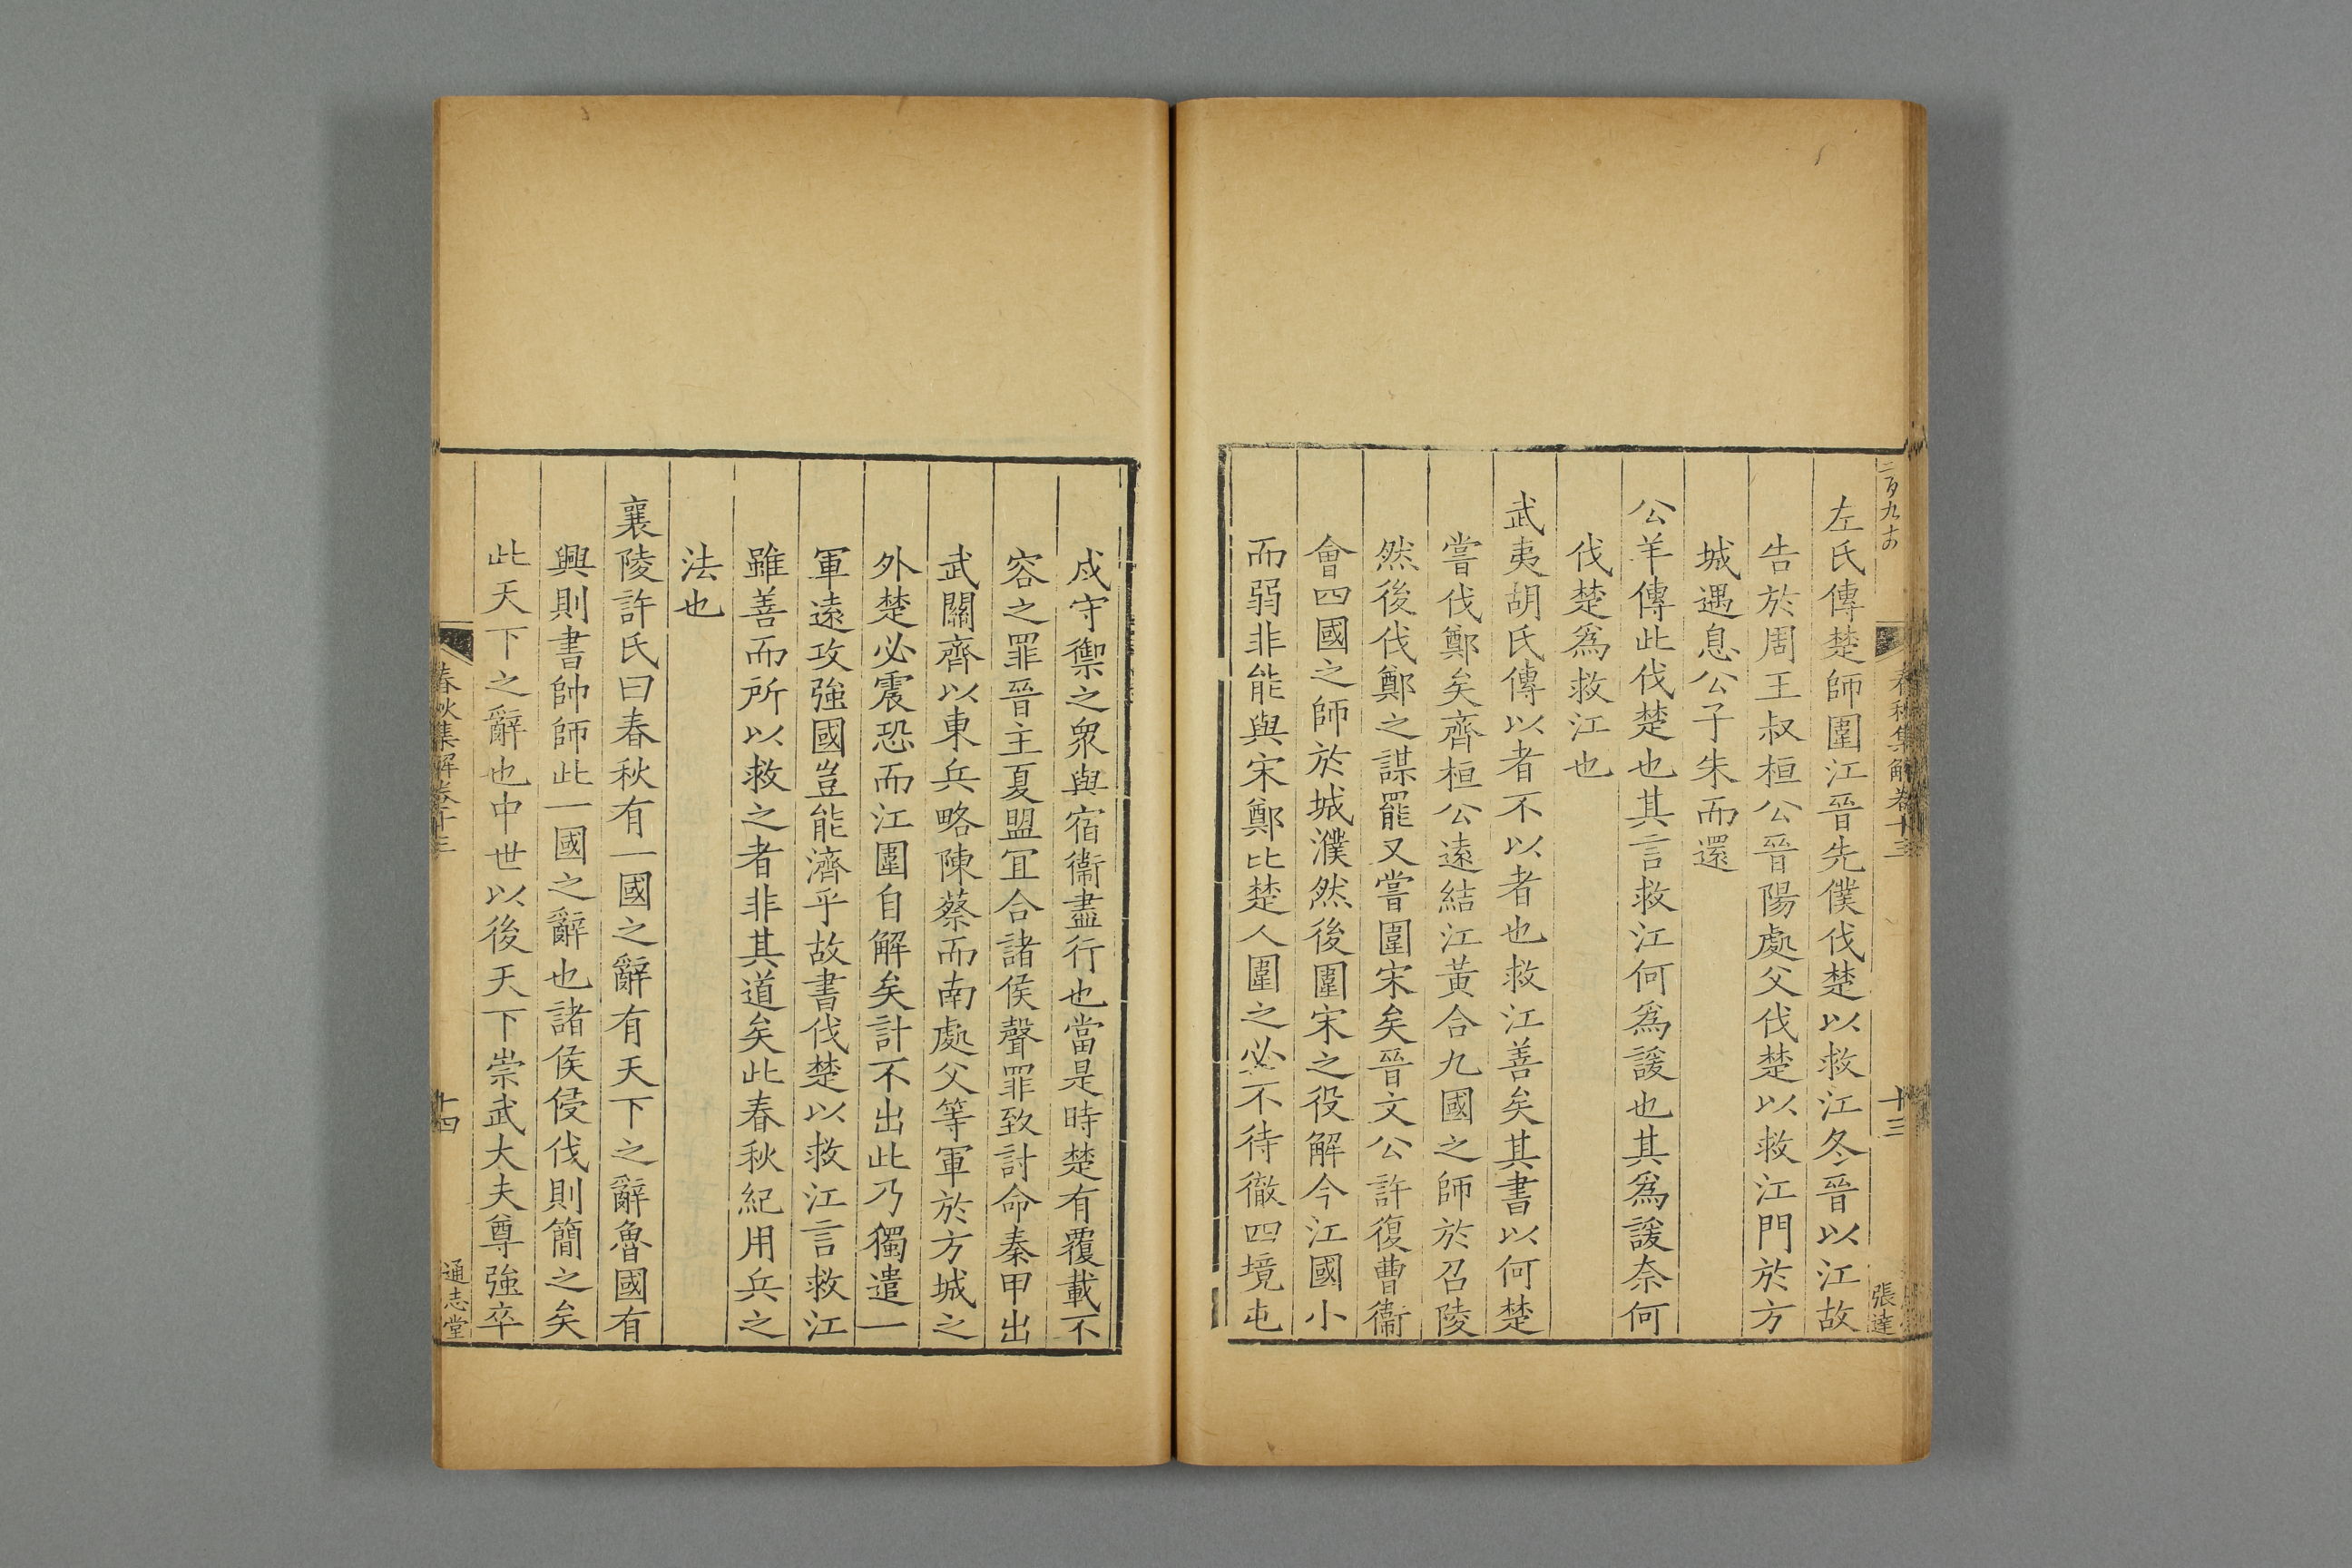 二百九十
春秋集解卷十三
十三
張達
左氏傳楚師圍江晉先僕伐楚以救江冬晉以江故
告於周王叔桓公晉陽處父伐楚以救江門於方
城遇息公子朱而還
公羊傳此伐楚也其言救江何爲諼也其爲諼奈何
伐楚爲救江也
武夷胡氏傳以者不以者也救江善矣其書以何楚
嘗伐鄭矣齊桓公遠結江黃合九國之師於召陵
然後伐鄭之謀罷又嘗圍宋矣晉文公許復曹衞
會四國之師於城濮然後圍宋之役解今江國小
而弱非能與宋鄭比楚人圍之必不待徹四境屯
戍守禦之衆與宿衞盡行也當是時楚有覆載不
容之罪晉主夏盟宜合諸侯聲罪致討命秦甲出
武關齊以東兵略陳蔡而南處父等軍於方城之
外楚必震恐而江圍自解矣計不出此乃獨遣一
軍遠攻強國豈能濟乎故書伐楚以救江言救江
雖善而所以救之者非其道矣此春秋紀用兵之
法也
襄陵許氏曰春秋有一國之辭有天下之辭魯國有
興則書帥師此一國之辭也諸侯侵伐則簡之矣
此天下之辭也中世以後天下崇武大夫尊強卒
春秋集解卷十三
十四
通志堂